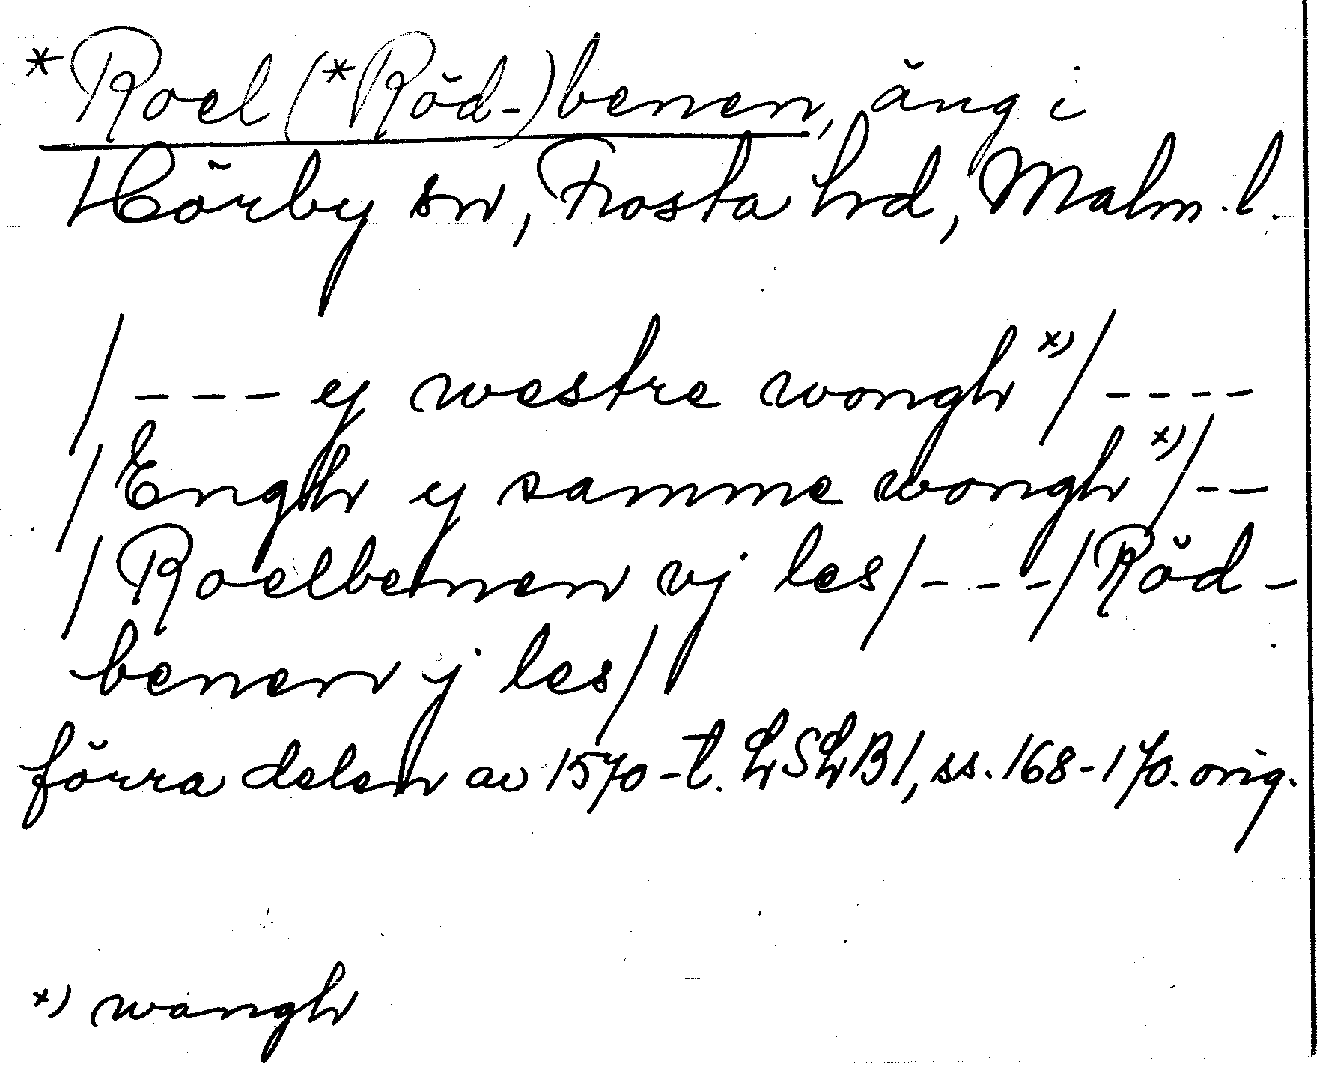 *Roel (*Röd-)benen, äng i
Hörby sn, Frosta hrd, Malm. l.
/ --- ey westre wongh x) / ----
/ Engh ey samme wongh x) / --
/ Roelbenen vj les / --- / Röd-
benen j les /
förra delen av 1570-t. LSLB 1, ss. 168-170. orig.
x) wangh